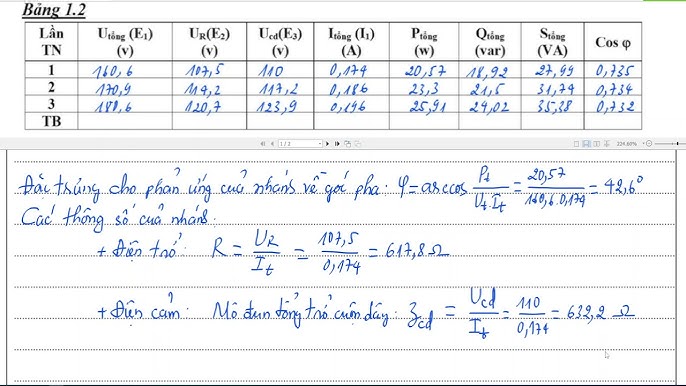 Bảng 1.2
Lần TN Utổng (E1) (v) UR(E2) (v) Ucd(E3) (v) Itổng (I1) (A) Ptổng (w) Qtổng (var) Stổng (VA) Cos φ
1 160,6 107,5 110 0,174 20,57 18,92 27,99 0,735
2 170,9 114,2 117,2 0,186 23,3 21,5 31,74 0,734
3 180,6 120,7 123,9 0,196 25,91 24,02 35,38 0,732
TB
1 / 2
224,60%
Đặc trưng cho phản ứng của nhánh về góc pha: φ = arccos Pt/(Ut.It) = 20,57/(160,6.0,174) = 42,6°
Các thông số của nhánh:
+ Điện trở: R = UR/It = 107,5/0,174 = 617,8 Ω
+ Điện cảm: Mô đun tổng trở cuộn dây: zcd = Ucd/It = 110/0,174 = 632,2 Ω